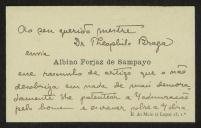 Ao seu querido mestre
Dr Theophilo Braga
envia
Albino Forjaz de Sampayo
esse rascunho de artigo que o não
desobriga em nada de mais demora-
damente lhe patentear a admiração
pelo homem e escrever sobre a obra.